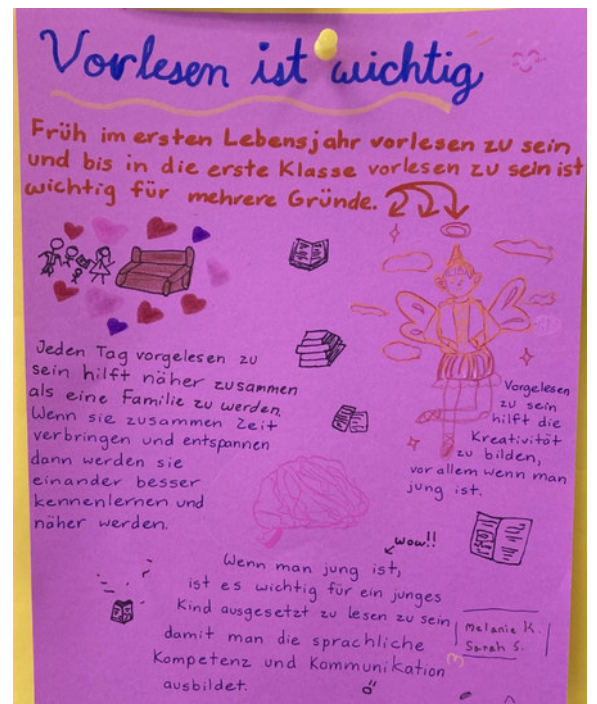 Vorlesen ist wichtig
Früh im ersten Lebensjahr vorlesen zu sein
und bis in die erste Klasse vorlesen zu sein ist
wichtig für mehrere Gründe.
Jeden Tag vorgelesen zu
sein hilft näher zusammen
als eine Familie zu werden.
Wenn sie zusammen Zeit
verbringen und entspannen
dann werden sie
einander besser
kennenlernen und
näher werden.
Vorgelesen
zu sein
hilft die
Kreativität
zu bilden,
vor allem wenn man
jung ist.
wow!!
Wenn man jung ist,
ist es wichtig für ein junges
Kind ausgesetzt zu lesen zu sein
damit man die sprachliche
Kompetenz und Kommunikation
ausbildet.
Melanie K.
Sarah S.